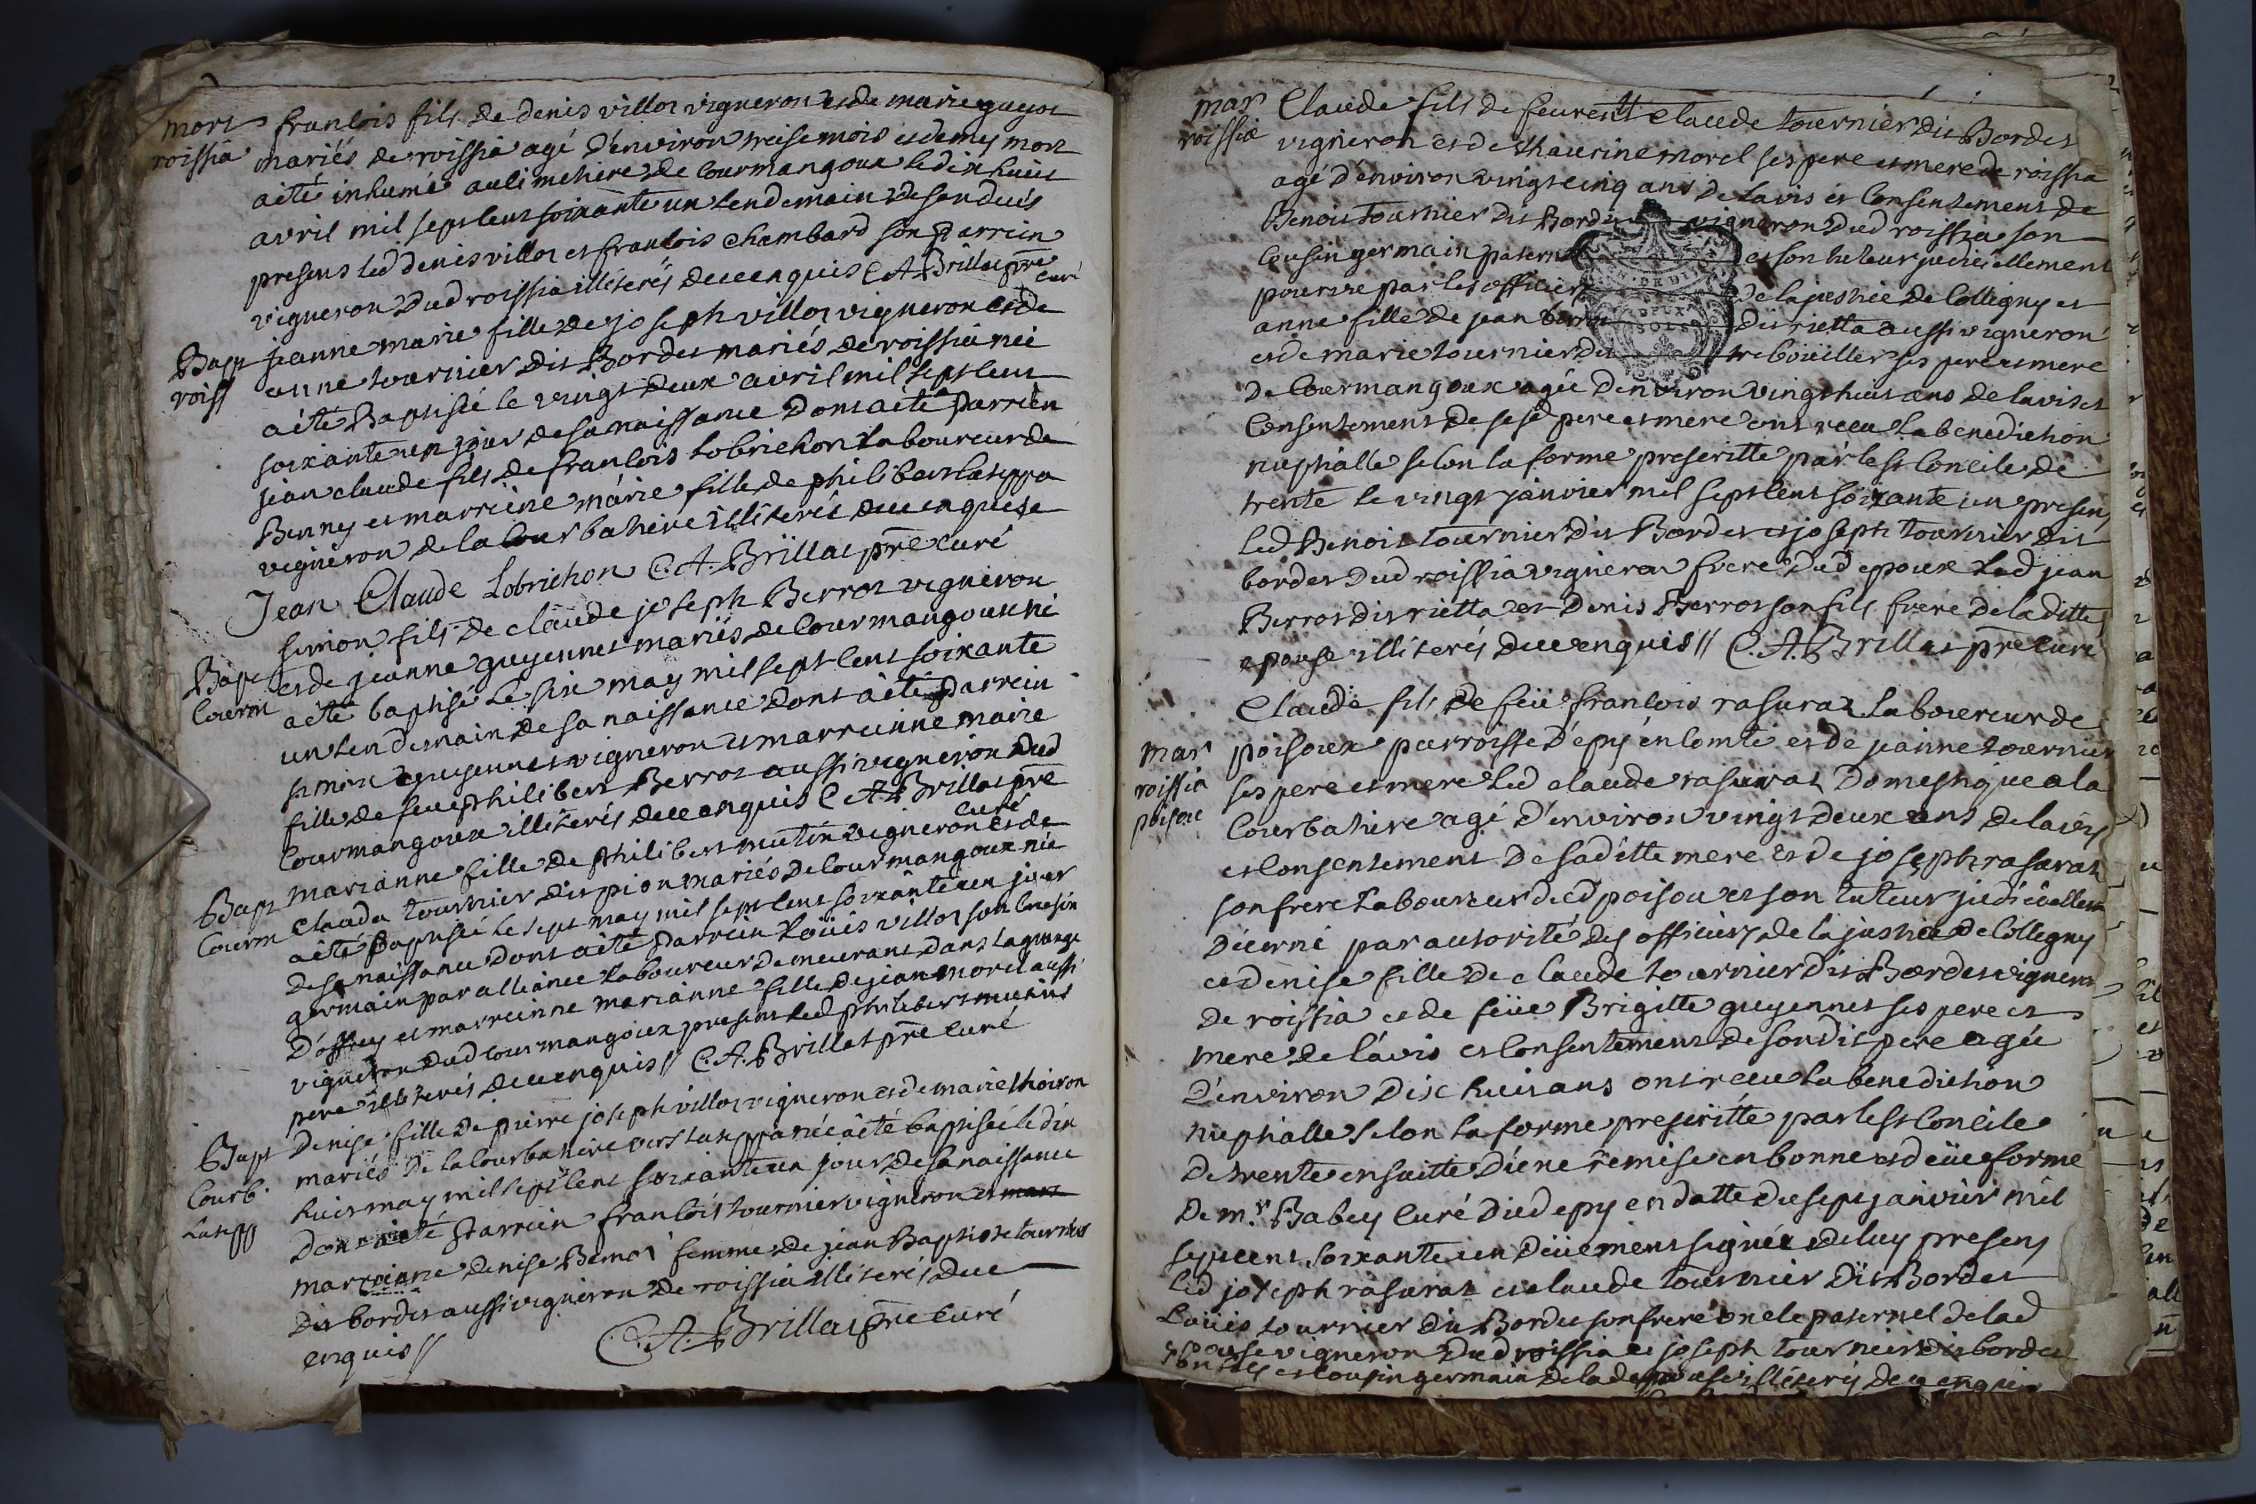 mort
roissia
francois fils de denis villot vigneron et de marie guyot
mariés de roissia agé d'environ treise mois et demy mort
a été inhumé au cimetiere de Courmangoux le dix huit
avril mil sept cent soixante un lendemain de son decés
presens led denis villot et francois Chambard son parrein
vigneron dud roissia illiterés de ce enquis C A Brillat pre
curé
Bapt
roiss
jeanne marie fille de joseph villot vigneron et de
anne tournier dit Bordes mariés de roissia née
a été Baptisée le vingt deux avril mil sept cent
soixante un jour de sa naissance dont a été parrein
jean claude fils de francois Lobrichon Laboureur de
Benny et marreine marie fille de philibert
vigneron de la Courbatiere illiterée de ce enquise
Jean Claude Lobrichon C. A. Brillat pre curé
Bapt
Courm
simon fils de claude joseph Berrot vigneron
et de jeanne guyennet mariés de Courmangoux né
a été baptisé le six may mil sept cent soixante
un lendemain de sa naissance dont a été parrein
simon guyennet vigneron et marreinne marie
fille de feu philibert Berrot aussi vigneron dud
Courmangoux illiterés de ce enquis C A Brillat pre
curé
Bapt
Courm
marianne fille de philibert mutin vigneron et de
Clauda tournier dit pion mariés de Courmangoux née
a été Baptisée le sept may mil sept cent soixante un jour
de sa naissance dont a été parrein Loüis villot son cousin
germain par alliance Laboureur demeurant dans la grange
et marreinne marianne fille de jean morel aussi
vigneron dud Courmangoux presens led philibert mutin
pere illiterés de ce enquis // C. A. Brillat pre curé
Bapt
Courb.
Denise fille de pierre joseph villot vigneron et de marie Thoiron
mariés de la Courbatiere née a été baptisée le dix
huit may mil sept cent soixante un jour de sa naissance
dont a été parrein francois tournier vigneron et marr
marreinne denise femme de jean Baptiste tournier
dit bordes aussi vigneron de roissia illiterés de ce
enquis //
C. A. Brillat pre curé
mar
roissia
Claude fils de feu Claude tournier dit Bordes
vigneron et de morel ses pere et mere de roissia
agé d'environ vingt cinq ans de l'avis et consentement de
Benoit tournier dit Bordes vigneron dud roissia son
cousin germain paternel et son tuteur judiciellement
pourvu par les officiers de la justice de Colligny et
anne fille de jean berrot dit rietta aussi vigneron
et de marie tournier dit ses pere et mere
de Courmangoux agée d'environ vingt huit ans de l'avis et
consentement de sesd pere et mere ont receu la benediction
nuptialle selon la forme prescritte par le st Concile de
trente le vingt janvier mil sept cent soixante un presens
led Benoit tournier dit Bordes et joseph tournier dit
bordes dud roissia vigneron frere dud epoux led jean
Berrot dit rietta et Denis Berrot son fils frere de laditte
epouse illiterés de ce enquis // C. A. Brillat pre curé
mar
roissia
Claude fils de feu francois rasurat Laboureur de
poisoux parroisse d'epy en comté et de jeanne tournier
ses pere et mere led claude rasurat Domestique a la
Courbatiere agé d'environ vingt deux ans de l'avis
et consentement de saditte mere et de joseph rasurat
son frere Laboureur dud poisoux et son tuteur judiciellem
décerné par autorité des officiers de la justice de Colligny
et denise fille de claude tournier dit Bordes vigneron
de roissia et de feüe Brigitte guyennet ses pere et
mere de l'avis et consentement de sondit pere agée
d'environ dix huit ans ont receu la benediction
nuptialle selon la forme prescritte par le st Concile
de trente ensuitte d'une remise en bonne et deüe forme
de mr Babey curé dud epy en datte du sept janvier mil
sept cent soixante un düement signée de luy presens
led joseph rasurat et claude tournier dit Bordes
Loüis tournier dit Bordes son frere oncle paternel de lad
epouse vigneron dud roissia et joseph tournier dit bordes
et cousin germain de lad epouse illiterés de ce enquis